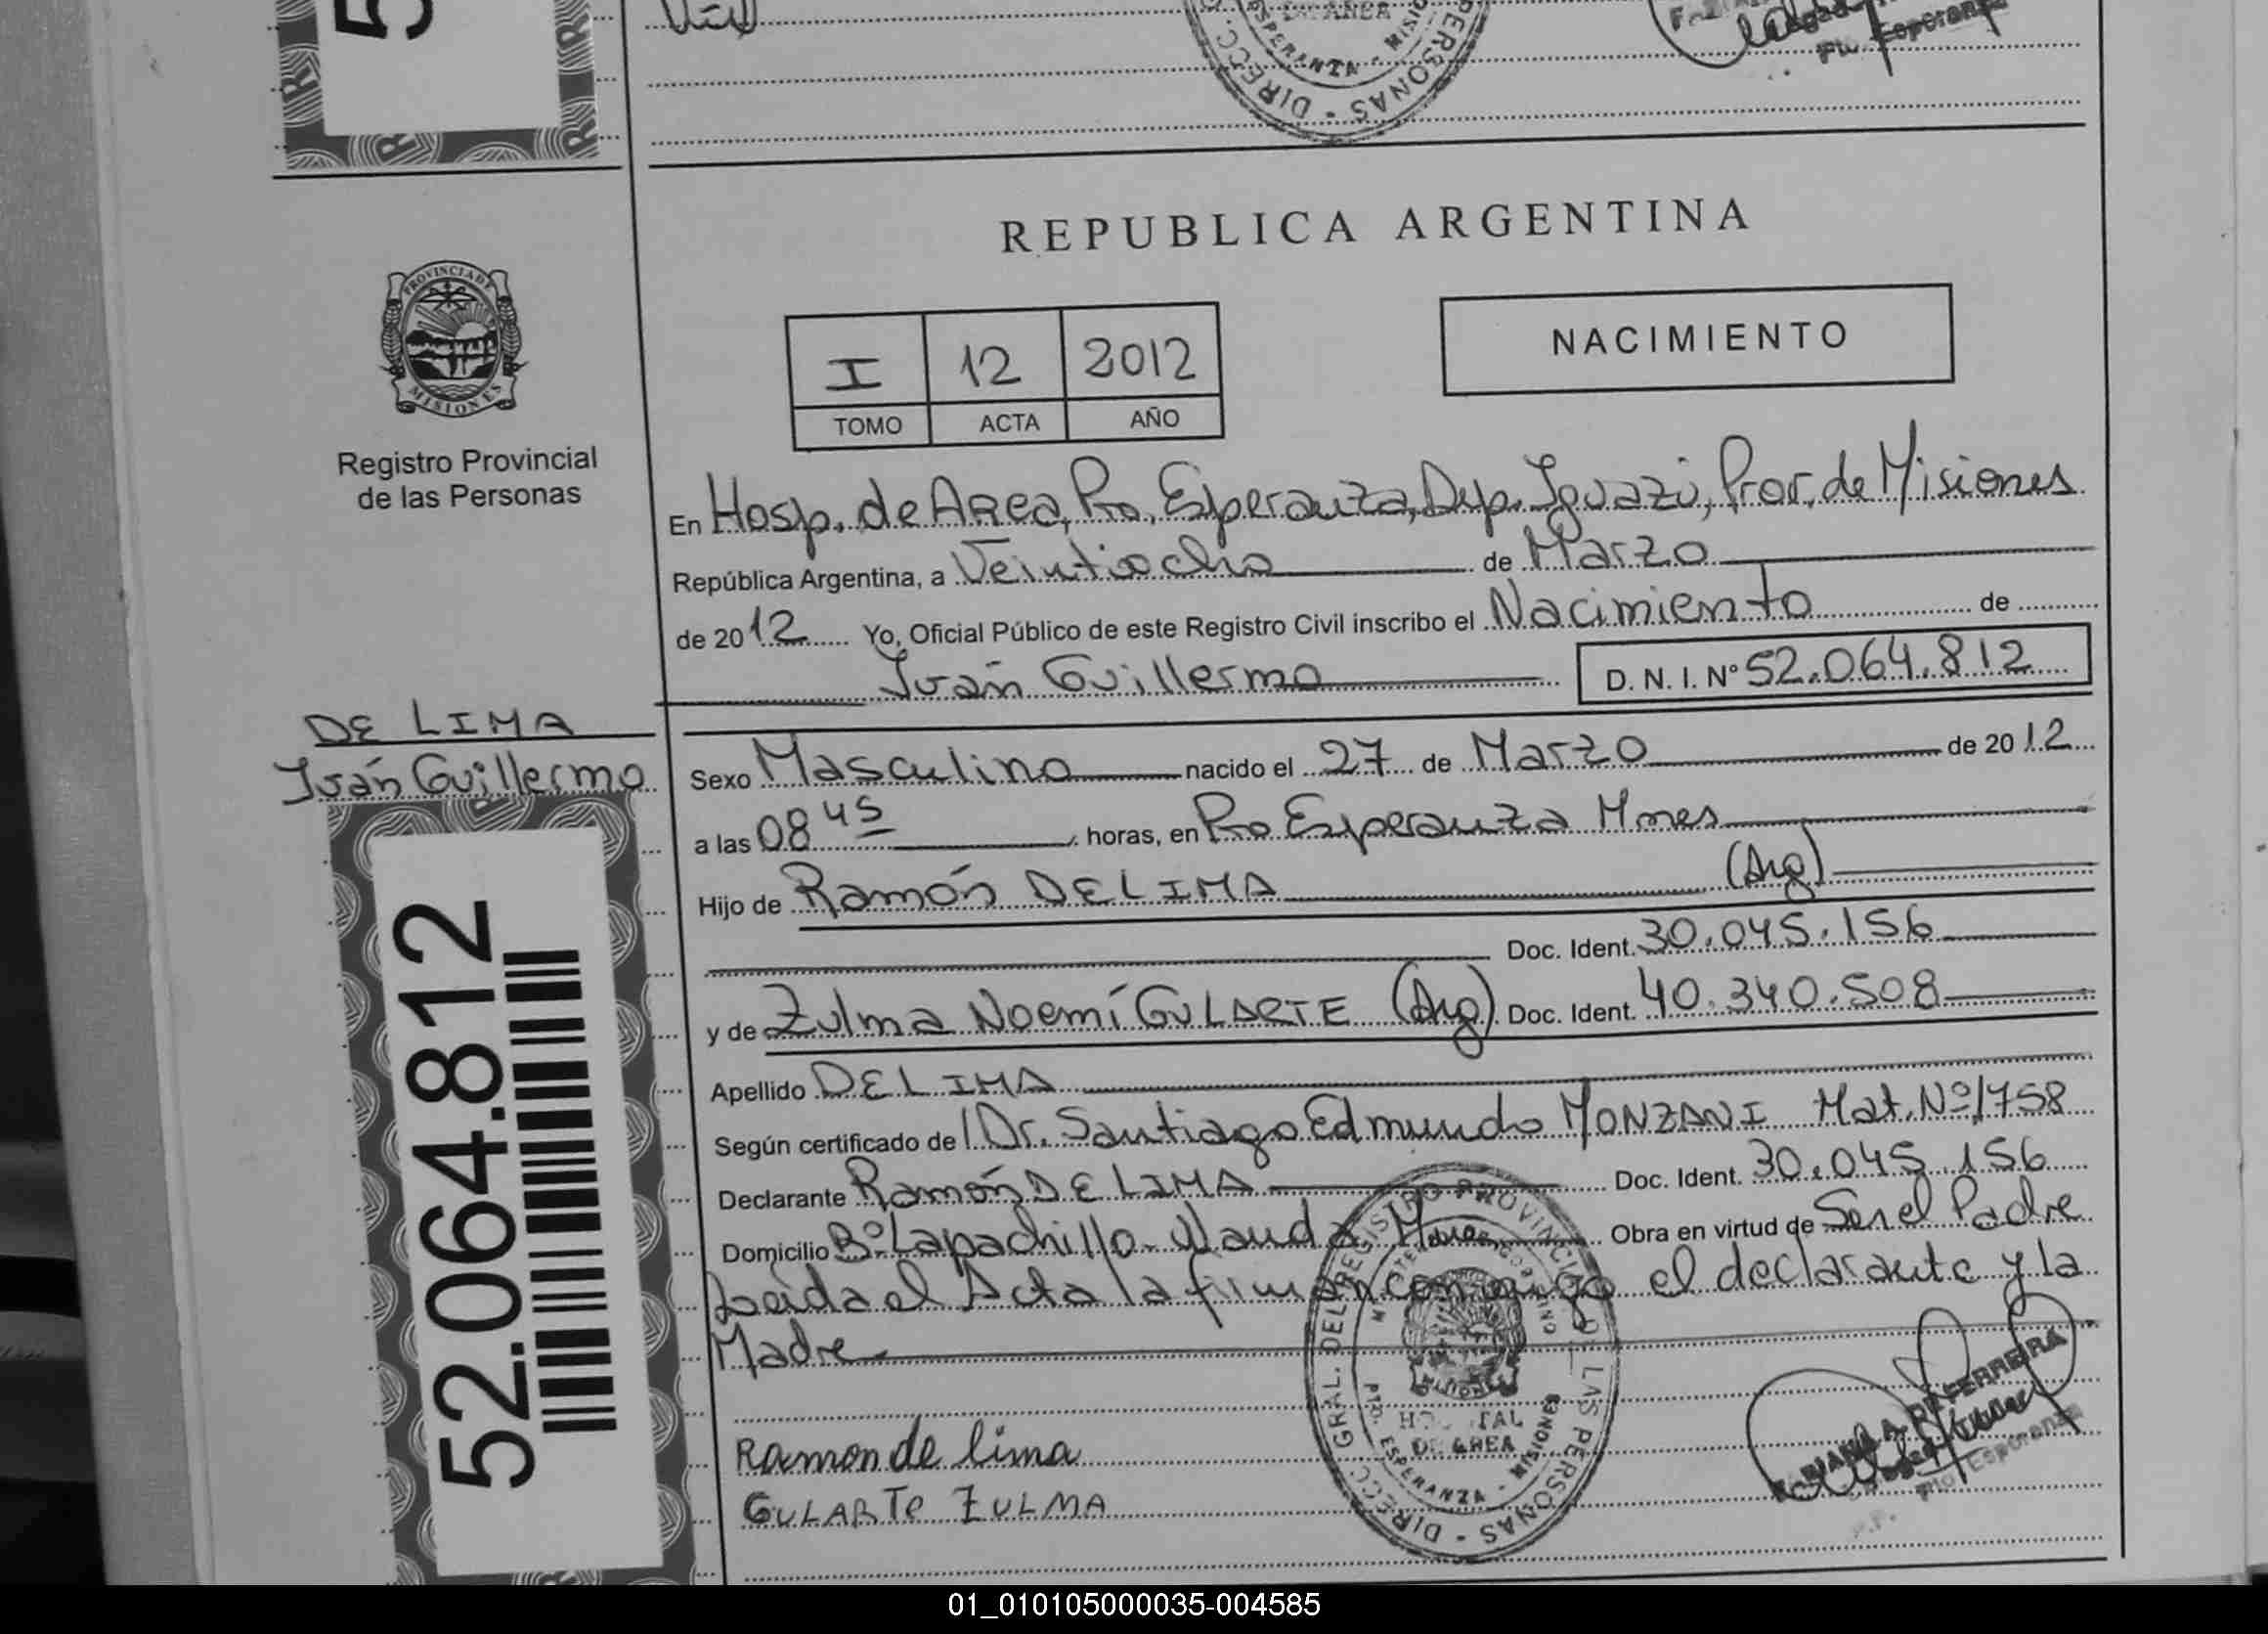 REPUBLICA ARGENTINA
PROVINCIA DE
MISIONES
Registro Provincial
de las Personas
I 12 2012
TOMO ACTA AÑO
NACIMIENTO
En Hosp. de Area, Pto. Esperanza, Dep. Iguazú, Prov. de Misiones
República Argentina, a Veintiocho de Marzo
de 2012 Yo, Oficial Público de este Registro Civil inscribo el Nacimiento de
Iván Guillermo D. N. I. Nº 52.064.812
DE LIMA
Iván Guillermo
52.064.812
Sexo Masculino nacido el 27 de Marzo de 2012
a las 08 45 horas, en Pto Esperanza Mnes
Hijo de Ramón DE LIMA (Arg)
Doc. Ident. 30.045.156
y de Zulma Noemí GULARTE (Arg) Doc. Ident. 40.340.508
Apellido DE LIMA
Según certificado de Dr. Santiago Edmundo MONZANI Mat. Nº 1758
Declarante Ramón DE LIMA Doc. Ident. 30.045.156
Domicilio Bº Lapachillo - Wanda Mnes Obra en virtud de Ser el Padre
Leida el Acta la firman conmigo el declarante y la
Madre
Ramon de lima
GULARTE ZULMA
DIRECC. GRAL. DEL REGISTRO PROVINCIAL DE LAS PERSONAS
PTO. ESPERANZA - MISIONES
DE AREA
Pto. Esperanza
01_010105000035-004585